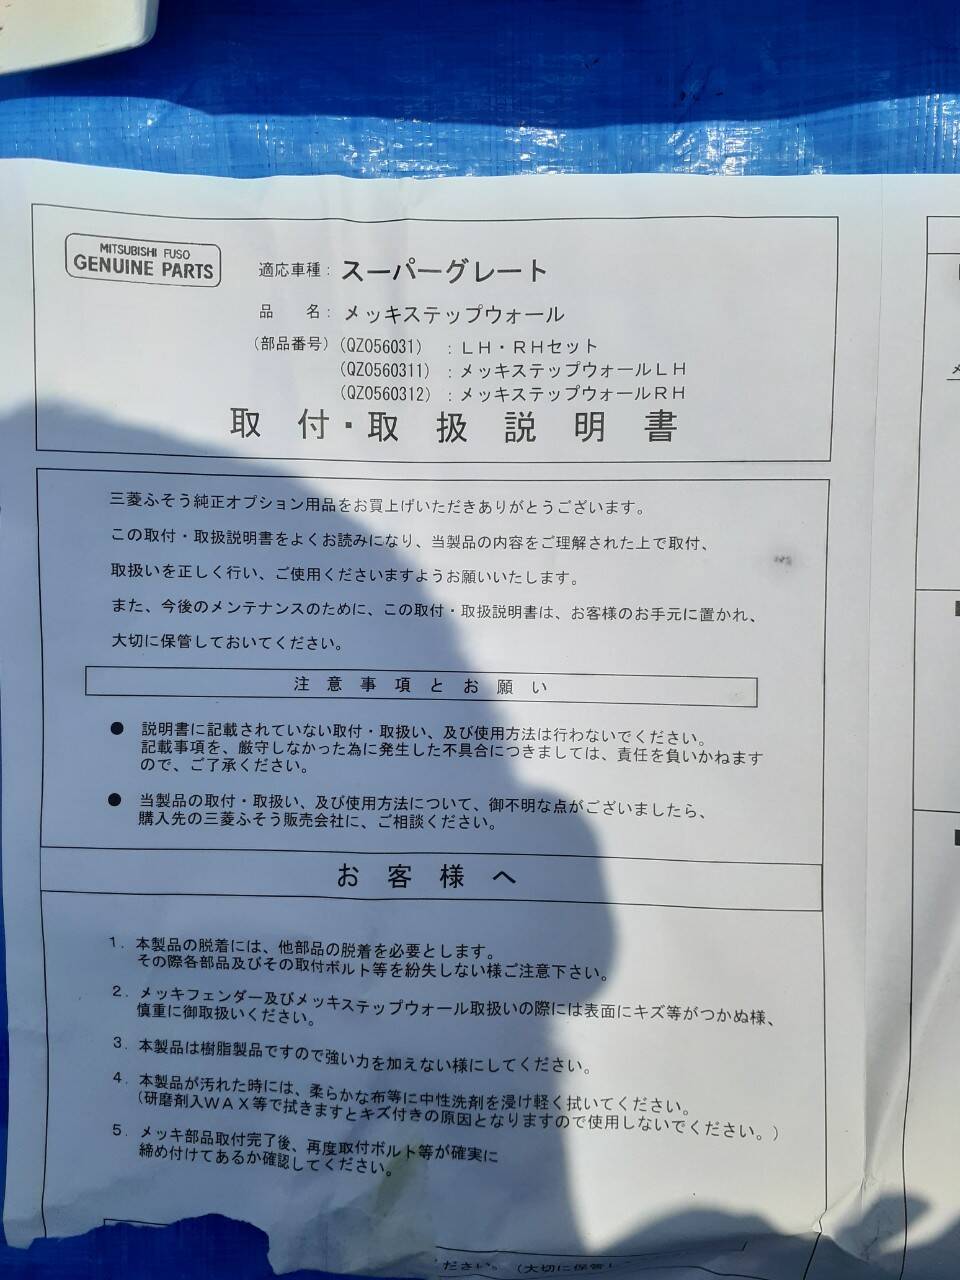 MITSUBISHI FUSO
GENUINE PARTS
適応車種：スーパーグレート
品　　名：メッキステップウォール
（部品番号）（QZ056031）：ＬＨ・ＲＨセット
（QZ0560311）：メッキステップウォールＬＨ
（QZ0560312）：メッキステップウォールＲＨ
取付・取扱説明書
三菱ふそう純正オプション用品をお買上げいただきありがとうございます。
この取付・取扱説明書をよくお読みになり、当製品の内容をご理解された上で取付、
取扱いを正しく行い、ご使用くださいますようお願いいたします。
また、今後のメンテナンスのために、この取付・取扱説明書は、お客様のお手元に置かれ、
大切に保管しておいてください。
注意事項とお願い
● 説明書に記載されていない取付・取扱い、及び使用方法は行わないでください。
記載事項を、厳守しなかった為に発生した不具合につきましては、責任を負いかねます
ので、ご了承ください。
● 当製品の取付・取扱い、及び使用方法について、御不明な点がございましたら、
購入先の三菱ふそう販売会社に、ご相談ください。
お客様へ
１．本製品の脱着には、他部品の脱着を必要とします。
その際各部品及びその取付ボルト等を紛失しない様ご注意下さい。
２．メッキフェンダー及びメッキステップウォール取扱いの際には表面にキズ等がつかぬ様、
慎重に御取扱いください。
３．本製品は樹脂製品ですので強い力を加えない様にしてください。
４．本製品が汚れた時には、柔らかな布等に中性洗剤を浸け軽く拭いてください。
（研磨剤入ＷＡＸ等で拭きますとキズ付きの原因となりますので使用しないでください。）
５．メッキ部品取付完了後、再度取付ボルト等が確実に
締め付けてあるか確認してください。
ください。（大切に保管し